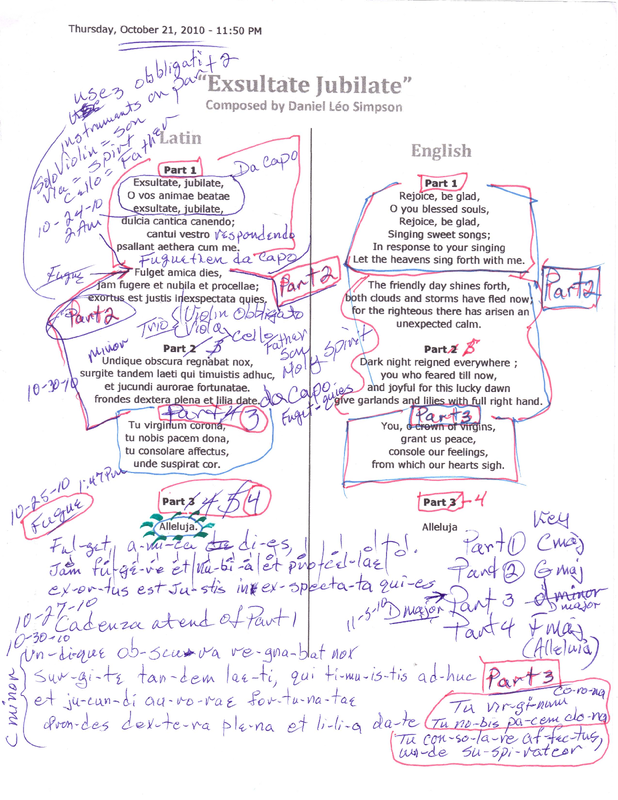 Thursday, October 21, 2010 - 11:50 PM
"Exsultate Jubilate"
Composed by Daniel Léo Simpson
use 3 obbligati
instruments on part 2
Solo Violin = Son
Via = Spirt
Cello = Father
10-24-10
2 Am
Latin
Part 1
Da capo
Exsultate, jubilate,
O vos animae beatae
exsultate, jubilate,
dulcia cantica canendo;
cantui vestro respondendo
psallant aethera cum me.
Fugue then da capo
Fugue
Fulget amica dies,
jam fugere et nubila et procellae;
exortus est justis inexspectata quies.
Part 2
Part 2
Trio
Violin obbligato
Viola
cello
Father
Son
Holy Spirit
minor
Part 2 3
Undique obscura regnabat nox,
surgite tandem laeti qui timuistis adhuc,
et jucundi aurorae fortunatae.
frondes dextera plena et lilia date.
10-30-10
da Capo
Fuget-quies
Part 4 3
Tu virginum corona,
tu nobis pacem dona,
tu consolare affectus,
unde suspirat cor.
10-25-10 1:47 Pm
Fugue
Part 3 4 5 4
Alleluja.
English
Part 1
Rejoice, be glad,
O you blessed souls,
Rejoice, be glad,
Singing sweet songs;
In response to your singing
Let the heavens sing forth with me.
The friendly day shines forth,
both clouds and storms have fled now;
for the righteous there has arisen an
unexpected calm.
Part 2
Part 2 3
Dark night reigned everywhere ;
you who feared till now,
and joyful for this lucky dawn
give garlands and lilies with full right hand.
Part 3
You, o crown of virgins,
grant us peace,
console our feelings,
from which our hearts sigh.
Part 3 - 4
Alleluja
Ful-get, a-mi-ca di-es,
Jam fu-ge-re et nu-bi-la et procel-lae
ex-or-tus est Ju-stis inex-spec-ta-ta qui-es
Key
Part 1 Cmaj
Part 2 Gmaj
11-5-10 D major Part 3 d minor
D major
Part 4 Fmaj
(Alleluia)
10-27-10
Cadenza at end of Part 1
10-30-10
C minor
Un-di-que ob-scu-ra re-gna-bat nox
Sur-gi-te tan-dem lae-ti, qui ti-mu-is-tis ad-huc
et ju-cun-di au-ro-rae for-tu-na-tae
fron-des dex-te-ra ple-na et li-li-a da-te
Part 3
Tu vir-gi-num co-ro-na
Tu no-bis pa-cem do-na
Tu con-so-la-re af-fec-tus,
un-de su-spi-rat cor